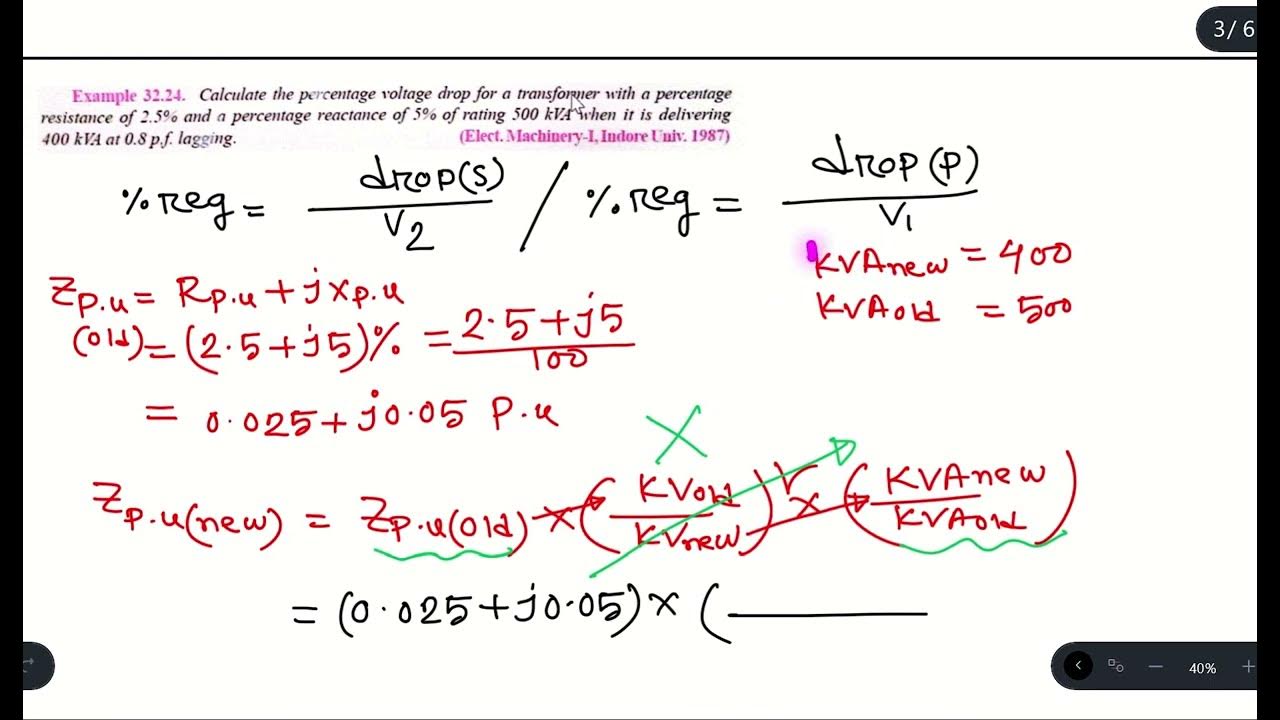 3/ 6
Example 32.24. Calculate the percentage voltage drop for a transformer with a percentage
resistance of 2.5% and a percentage reactance of 5% of rating 500 kVA when it is delivering
400 kVA at 0.8 p.f. lagging. (Elect. Machinery-I, Indore Univ. 1987)
% reg = drop(s) / V2 / % reg = drop(p) / V1
KVAnew = 400
KVAold = 500
Zp.u = Rp.u + jxp.u
(old) = (2.5+j5)% = 2.5+j5 / 100
= 0.025+j0.05 p.u
X
Zp.u(new) = Zp.u(old) × (KVold / KVnew)² × (KVAnew / KVAold)
= (0.025+j0.05) × (
40%